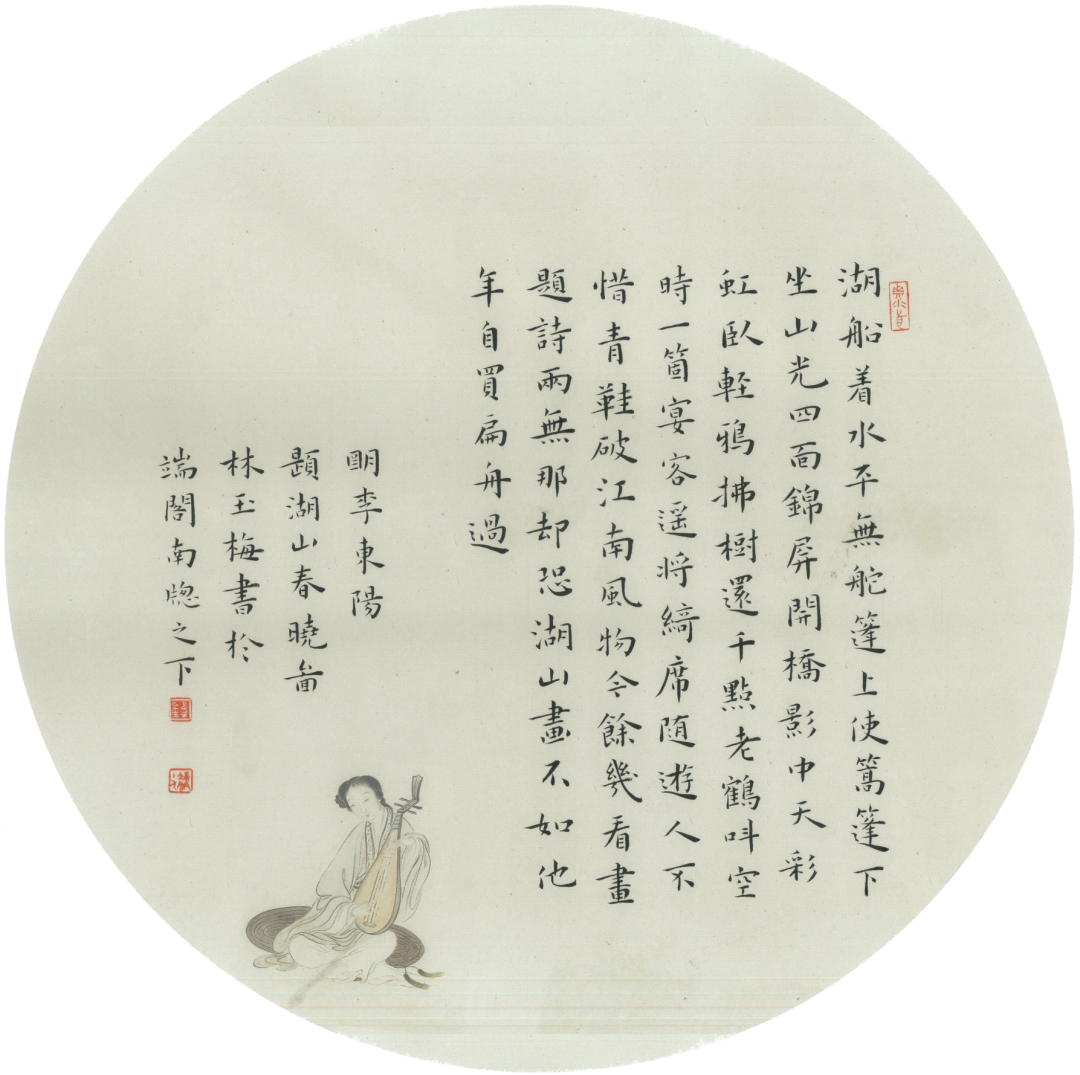 湖船着水平無舵篷上使篙篷下
坐山光四面錦屏開橋影中天彩
虹臥輕鴉拂樹還千點老鶴呌空
時一箇宴客遥將綺席随遊人不
惜青鞋破江南風物今餘幾看畫
題詩兩無那却恐湖山畫不如他
年自買扁舟過
明李東陽
題湖山春曉啚
林玉梅書於
端閣南牎之下